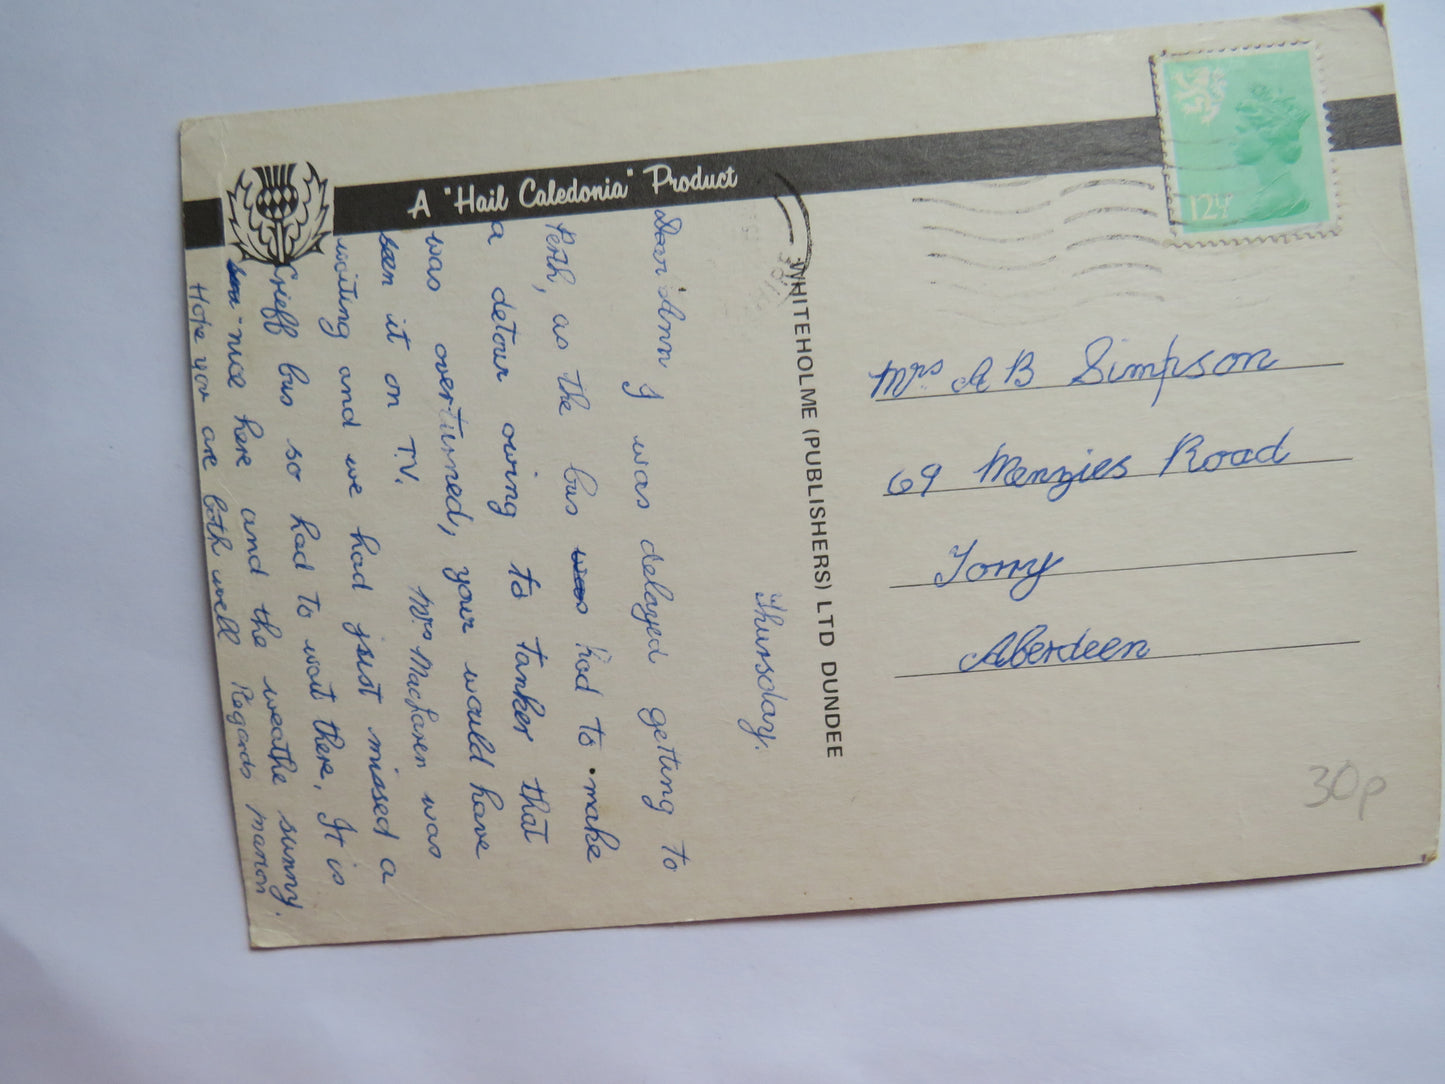 A "Hail Caledonia" Product
12½P
Thursday.
Dear Ann I was delayed getting to
Perth, as the bus was had to make
a detour owing to tanker that
was overturned, your would have
seen it on T.V. Mrs MacLaren was
waiting and we had just missed a
Crieff bus so had to wait there, It is
nice here and the weathe sunny.
Hope you are both well Regards Marion
WHITEHOLME (PUBLISHERS) LTD DUNDEE
Mrs A B Simpson
69 Menzies Road
Torry
Aberdeen
30p